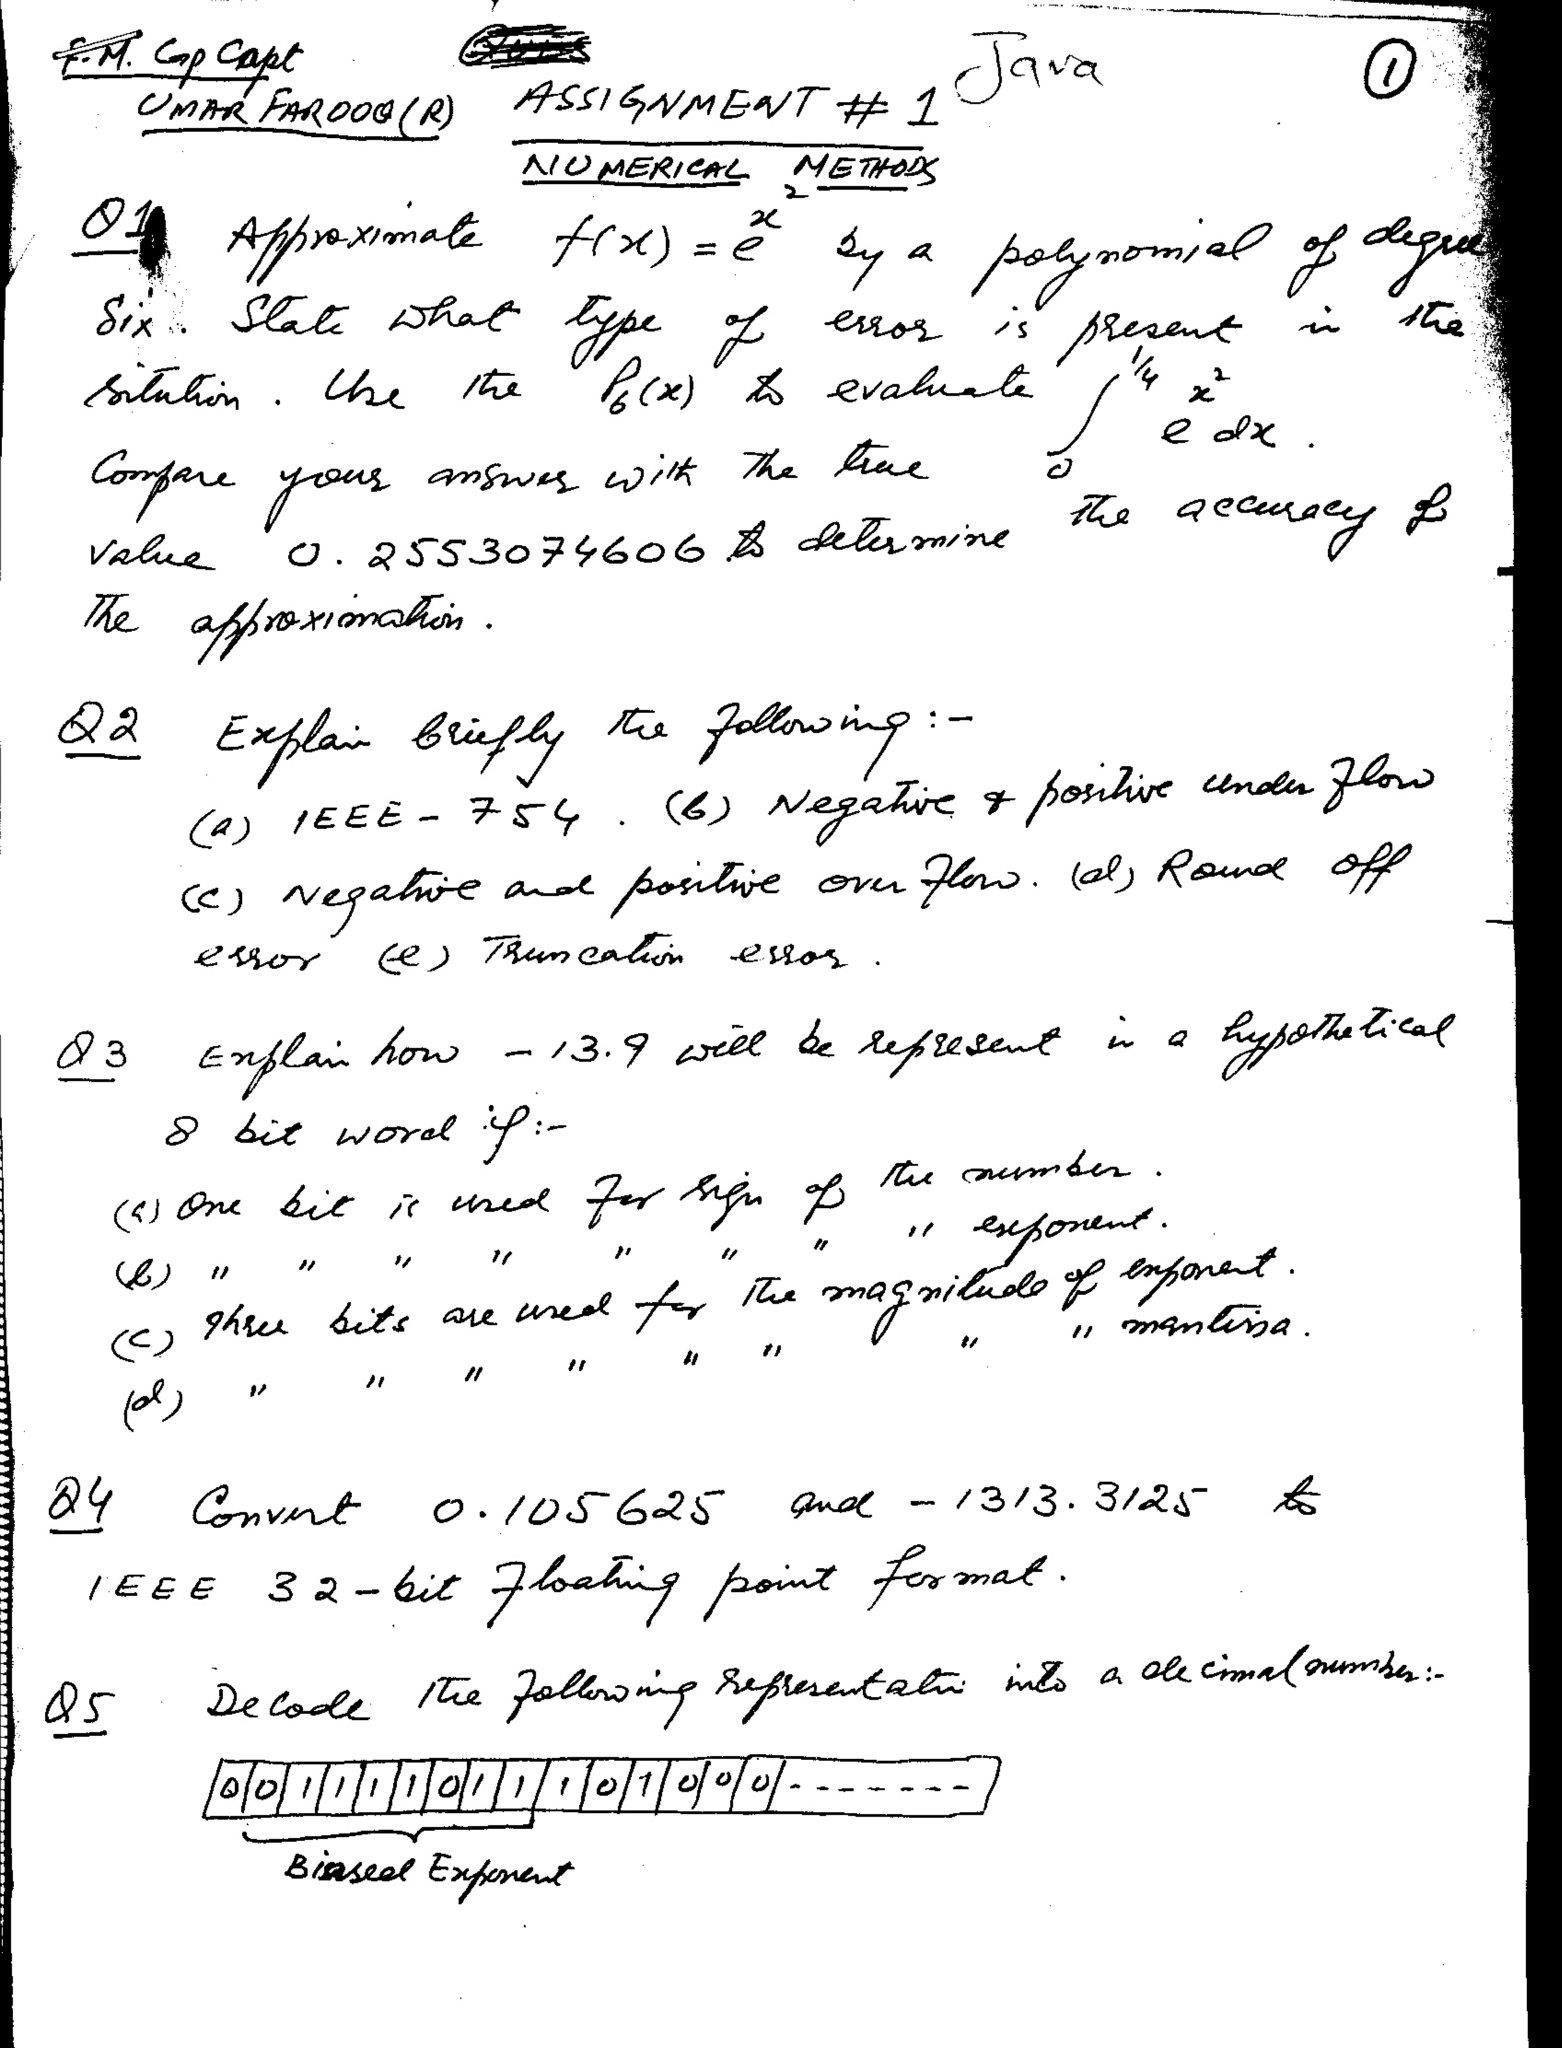 F.M. Gp Capt Java 1
UMAR FAROOQ (R) ASSIGNMENT # 1
NUMERICAL METHODS
Q1 Approximate f(x) = e^x^2 by a polynomial of degree
Six. State what type of error is present in the
sitution. Use the P6(x) to evaluate ∫0^1/4 e^x^2 dx.
Compare your answer with the true
value 0.2553074606 to determine the accuracy of
the approximation.
Q2 Explain briefly the following :-
(a) IEEE - 754. (b) Negative & positive under flow
(c) Negative and positive over flow. (d) Round off
error (e) Truncation error.
Q3 Explain how - 13.9 will be represent in a hypothetical
8 bit word if :-
(a) One bit is used for sign of the number.
(b) " " " " " " " " exponent.
(c) Three bits are used for the magnitude of exponent.
(d) " " " " " " " " mantissa.
Q4 Convert 0.105625 and - 1313.3125 to
IEEE 32-bit floating point format.
Q5 Decode the following representatin into a decimal number:-
0 0 1 1 1 1 0 1 1 1 0 1 0 0 0 - - - - - - -
Biased Exponent